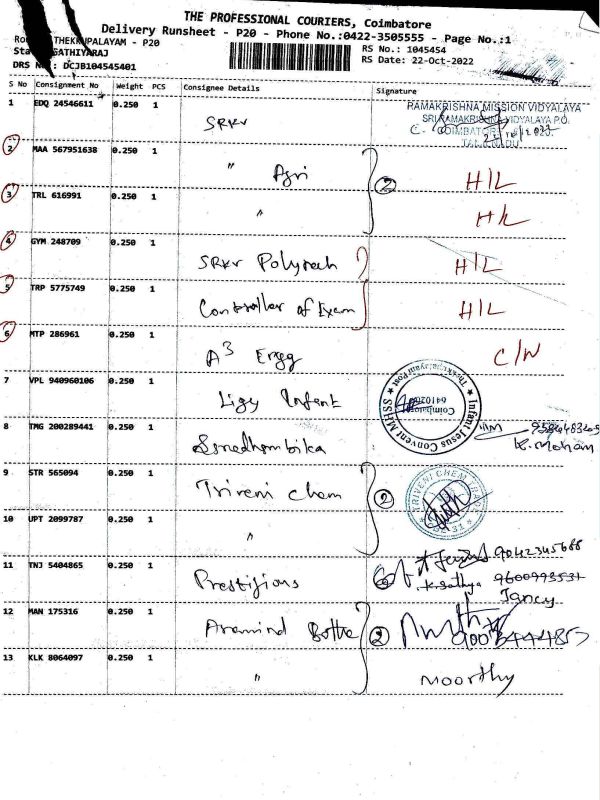 THE PROFESSIONAL COURIERS, Coimbatore
Delivery Runsheet - P20 - Phone No.:0422-3505555 - Page No.:1
THEKKUPALAYAM - P20
GATHIYARAJ
DRS : DCJB104545401
RS No.: 1045454
RS Date: 22-Oct-2022
S No Consignment No Weight PCS Consignee Details Signature
1 EDQ 24546611 0.250 1 SRKV RAMAKRISHNA MISSION VIDYALAYA
SRI RAMAKRISHNA VIDYALAYA P.O.
2 MAA 567951638 0.250 1 " Agri 2 H/L
3 TRL 616991 0.250 1 "
4 GYM 248709 0.250 1 SRKV Polytech H/L
5 TRP 5775749 0.250 1 Controller of Exam H/L
6 MTP 286961 0.250 1 A3 Engg C/N
7 VPL 940960106 0.250 1 Ligy Infant Infant Jesus Convent
Thekkupalayam Post
Coimbatore
8 TMG 200289441 0.250 1 K. Mohan
9 STR 565094 0.250 1 Triveni Chem 2 TRIVENI CHEM
10 UPT 2099787 0.250 1 "
11 TNJ 5404865 0.250 1 Prestigious 9042345688
K. Sathya 9600993531
Jancy
12 MAN 175316 0.250 1 Aravind 2
13 KLK 8064097 0.250 1 " Moorthy